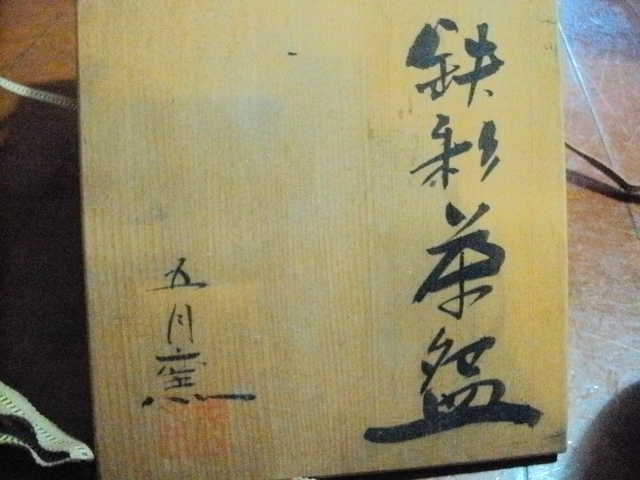 鉄彩茶盌
五月窯